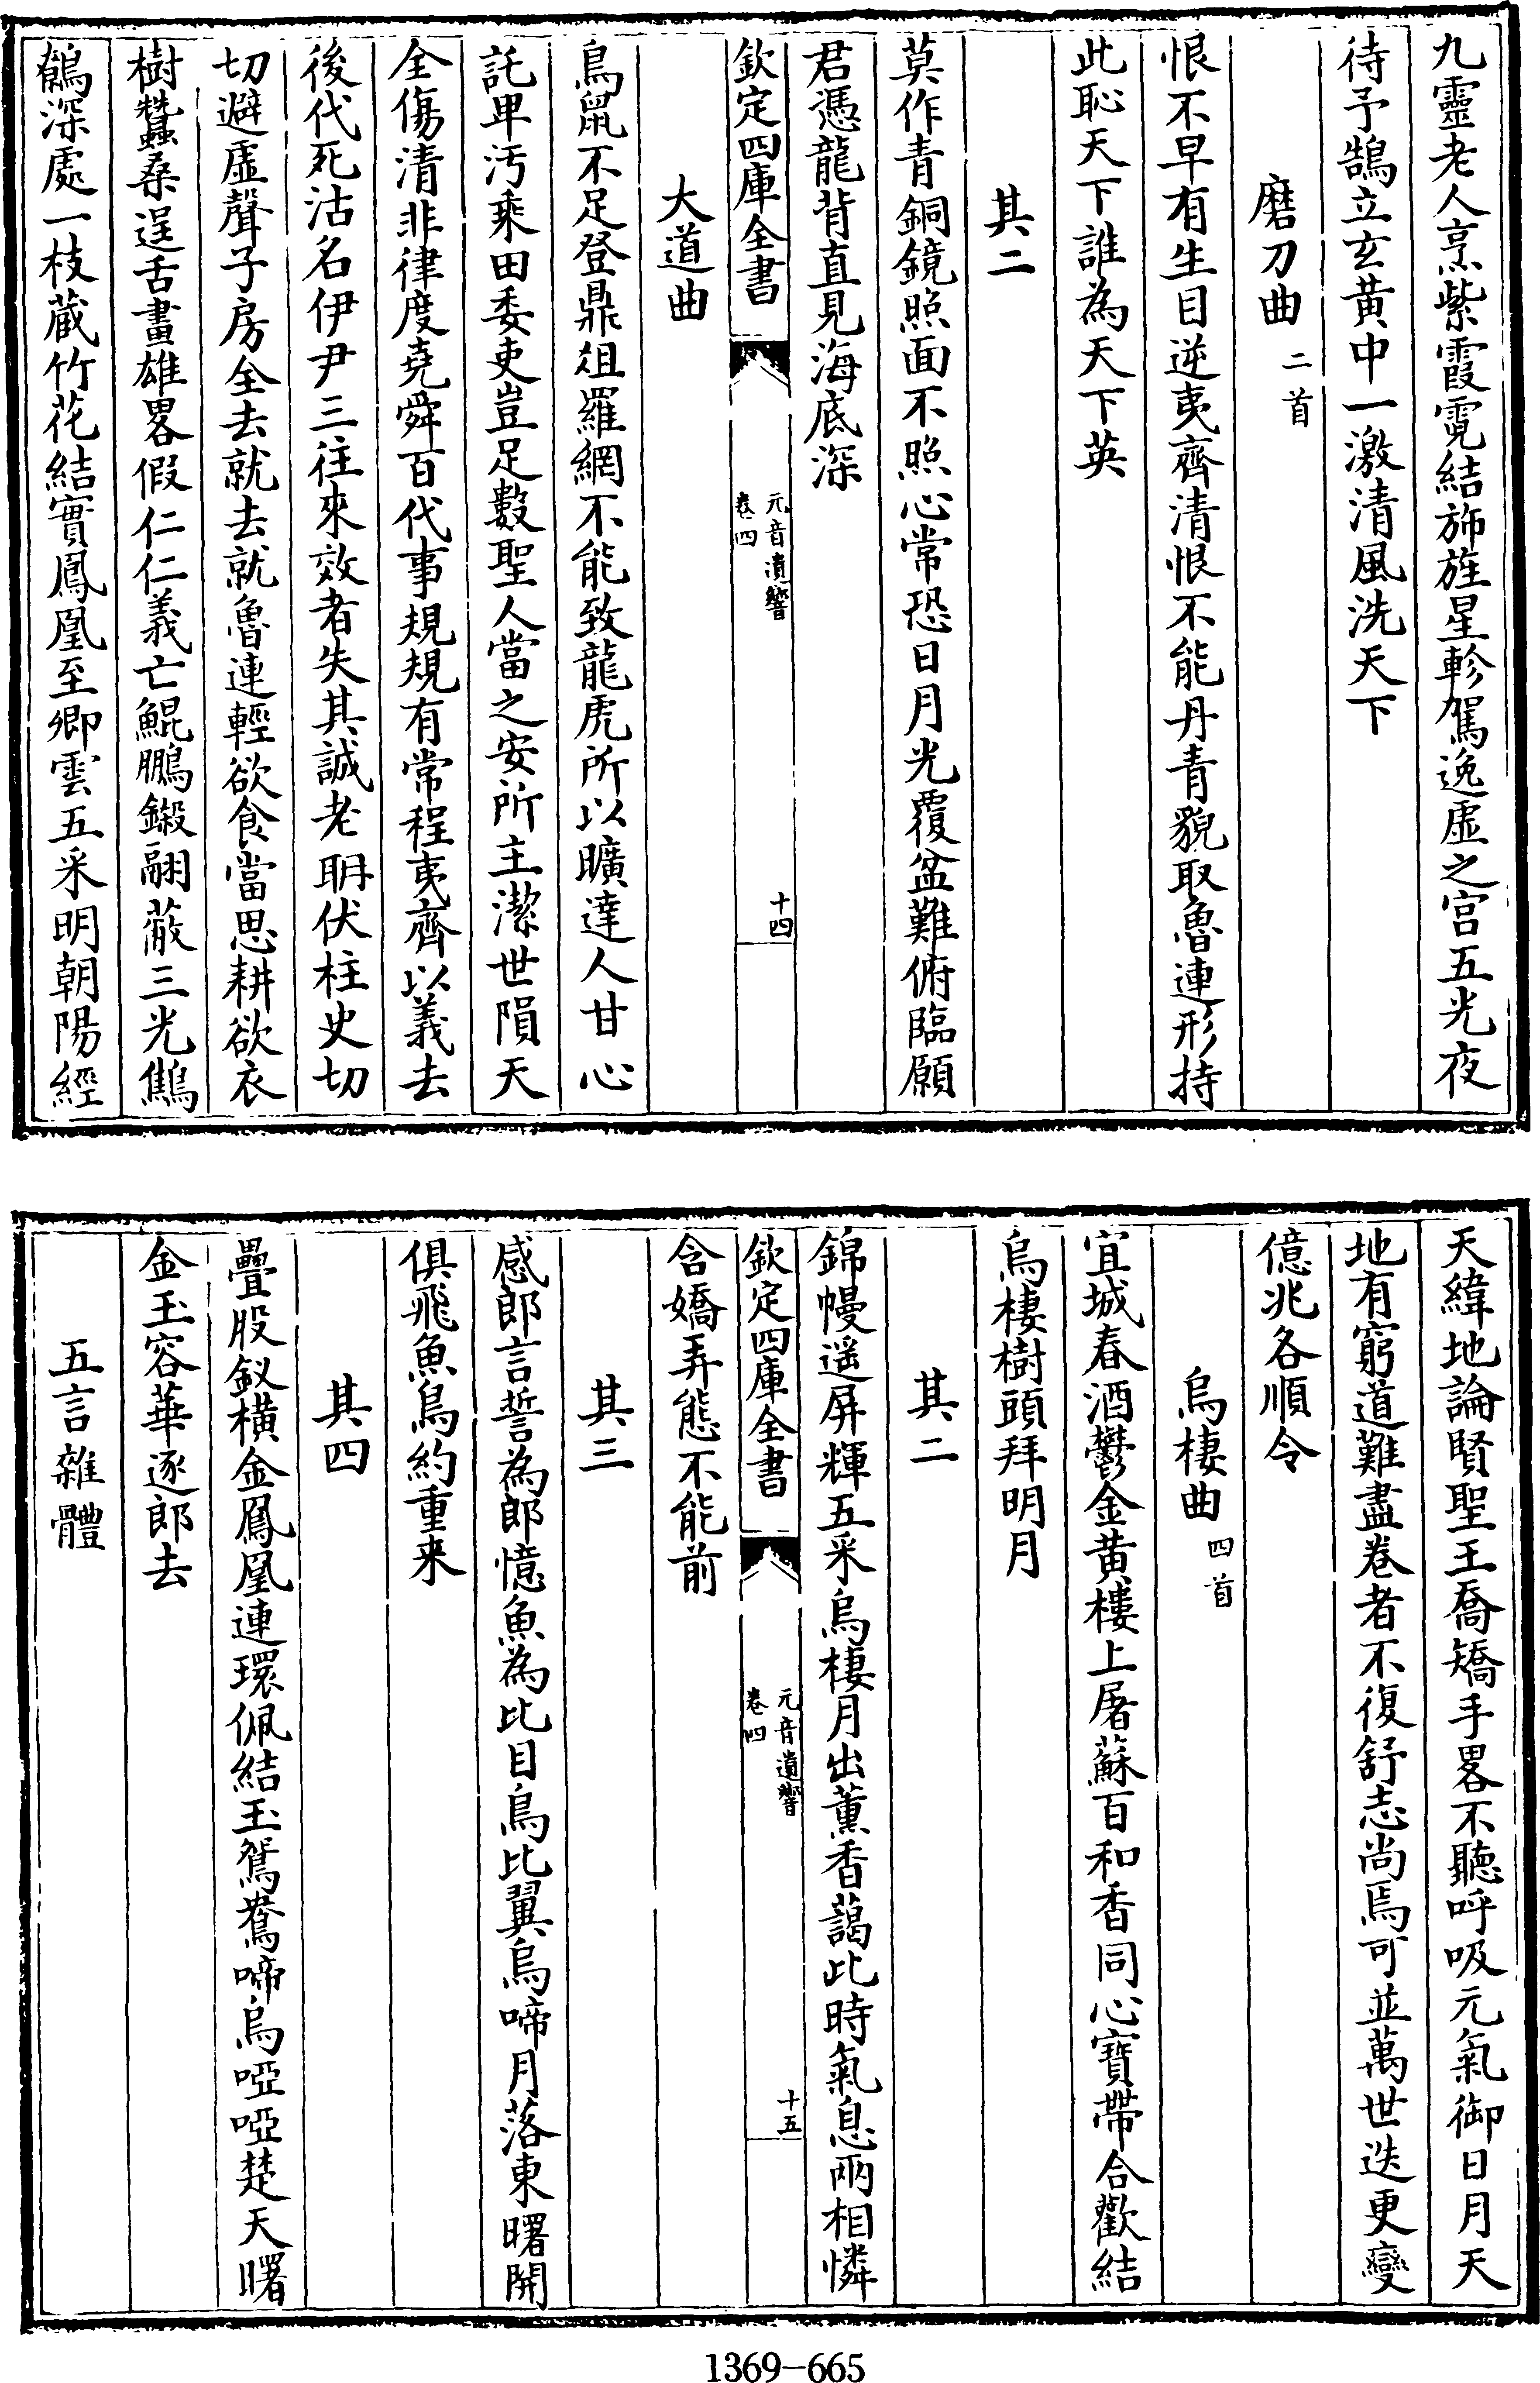 九靈老人烹紫霞霓結斾旌星軫駕逸虛之宫五光夜
待予鵠立玄黄中一激清風洗天下
磨刀曲二首
恨不早有生目逆夷齊清恨不能丹青貌取魯連形持
此恥天下誰為天下英
其二
莫作青銅鏡照面不照心常恐日月光覆盆難俯臨願
君憑龍背直見海底深
欽定四庫全書
元音遺響
卷四
十四
大道曲
鳥鼠不足登鼎俎羅網不能致龍虎所以曠達人甘心
託卑汚乘田委吏豈足數聖人當之安所主潔世隕天
全傷清非律度堯舜百代事規規有常程夷齊以義去
後代死沽名伊尹三往來效者失其誠老耼伏柱史切
切避虛聲子房全去就去就魯連輕欲食當思耕欲衣
樹蠶桑逞舌畫雄畧假仁仁義亡鯤鵬鎩翮蔽三光鷦
鷯深處一枝蔵竹花結實鳳凰至卿雲五采明朝陽經
天緯地論賢聖王喬矯手畧不聽呼吸元氣御日月天
地有窮道難盡卷者不復舒志尚焉可並萬世迭更變
億兆各順令
烏棲曲四首
宜城春酒鬱金黄樓上屠蘇百和香同心寳帶合歡結
烏棲樹頭拜明月
其二
錦幔遥屏輝五采烏棲月出薰香藹此時氣息兩相憐
欽定四庫全書
元音遺響
卷四
十五
含嬌弄態不能前
其三
感郎言誓為郎憶魚為比目鳥比翼烏啼月落東曙開
俱飛魚鳥約重来
其四
疊股釵横金鳳凰連環佩結玉鴛鴦啼烏啞啞楚天曙
金玉容華逐郎去
五言雜體
1369-665